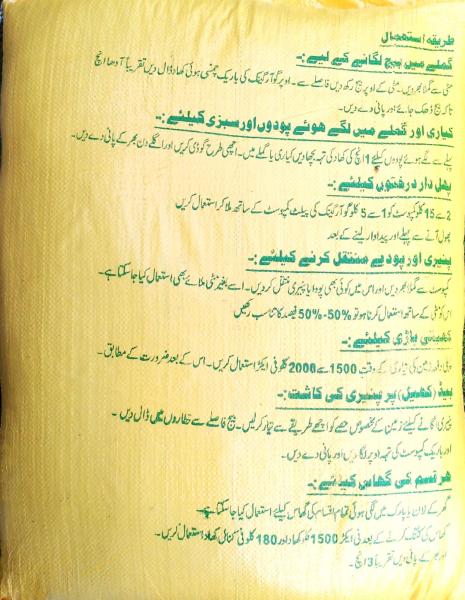 طریقہ استعمال
گملے میں بیج لگانے کے لیے :-
مٹی سے گملا بھر دیں۔ مٹی کے اوپر بیج رکھ دیں فاصلے سے۔ اوپر گو آرگینک کی باریک چھنی ہوئی کھاد ڈال دیں تقریباً آدھا انچ
تاکہ بیج ڈھک جائے اور پانی دے دیں۔
کیاری اور گملے میں لگے ھوئے پودوں اور سبزی کیلئے :-
پہلے سے لگے ہوئے پودوں کیلئے 1 انچ کی کھاد کی تہہ بچھا دیں کیاری یا گملے میں۔ اچھی طرح گوڈی کریں اور اگلے دن بھر کے پانی دے دیں۔
پھل دار درختوں کیلئے :-
2 سے 15 کلو کمپوسٹ کو 1 سے 5 کلو گو آرگینک کی پیلٹ کمپوسٹ کے ساتھ ملا کر استعمال کریں
پھول آنے سے پہلے اور پیداوار لینے کے بعد
پنیری اور پودے منتقل کرنے کیلئے :-
کمپوسٹ سے گملا بھر دیں اور اس میں کوئی بھی پودا یا پنیری منتقل کر دیں۔ اسے بغیر مٹی ملائے بھی استعمال کیا جا سکتا ہے۔
اس کو مٹی کے ساتھ استعمال کرنا ہو تو %50-%50 فیصد کا تناسب رکھیں
کھیتی باڑی کیلئے :-
دفعہ زمین کی تیاری کے وقت 1500 سے 2000 کلو فی ایکڑ استعمال کریں۔ اس کے بعد ضرورت کے مطابق۔
بیڈ (کھیل) پر پنیری کی کاشت :-
پنیری اگانے کیلئے زمین کے مخصوص حصے کو اچھے طریقے سے تیار کر لیں۔ بیج فاصلے سے قطاروں میں ڈال دیں۔
اور باریک کمپوسٹ کی تہہ اوپر لگا دیں اور پانی دے دیں۔
ھر قسم کی گھاس کیلئے :-
گھر کے لان یا پارک میں لگی ہوئی تمام اقسام کی گھاس کیلئے استعمال کیا جا سکتا ہے۔
گھاس کی کٹنگ کرنے کے بعد فی ایکڑ 1500 کلو کھاد اور 180 کلو فی کنال کھاد استعمال کریں۔
اور بھر کے پانی دیں تقریباً 3 انچ۔